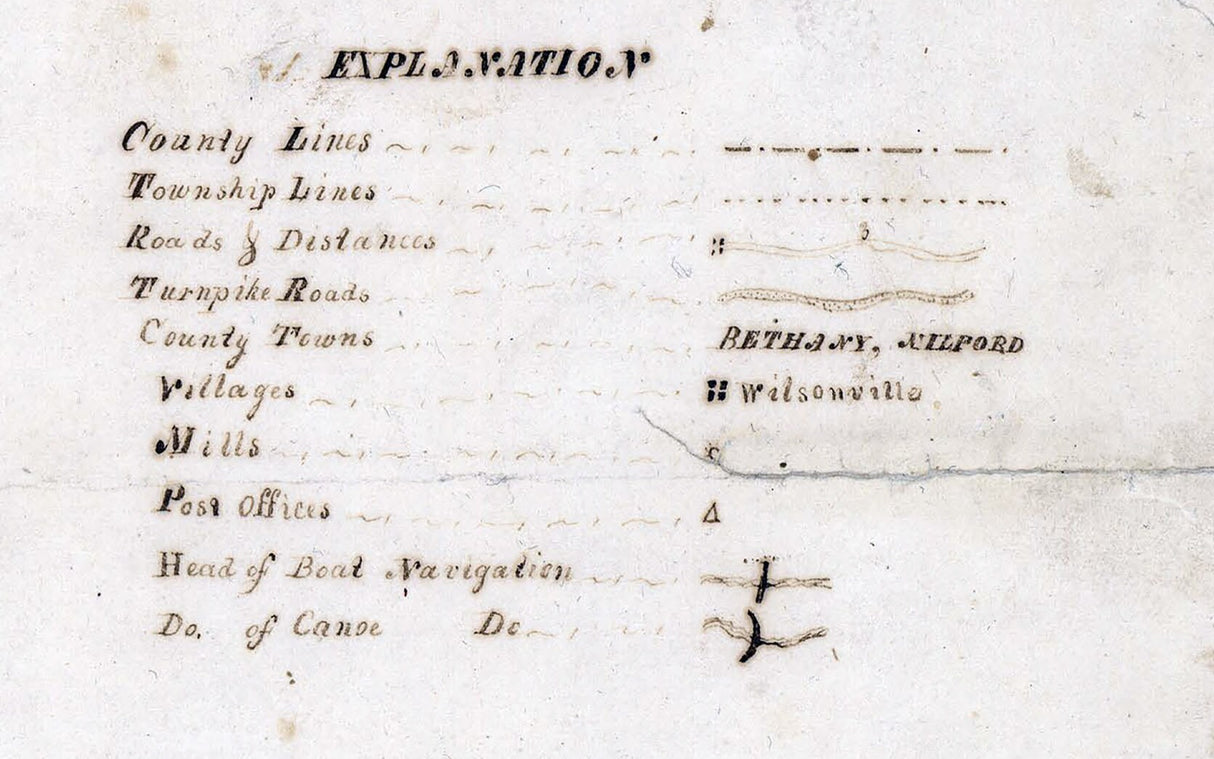 EXPLANATION
County Lines
Township Lines
Roads & Distances 8
Turnpike Roads
County Towns BETHANY, MILFORD
Villages Wilsonville
Mills
Post Offices
Head of Boat Navigation
Do. of Canoe Do